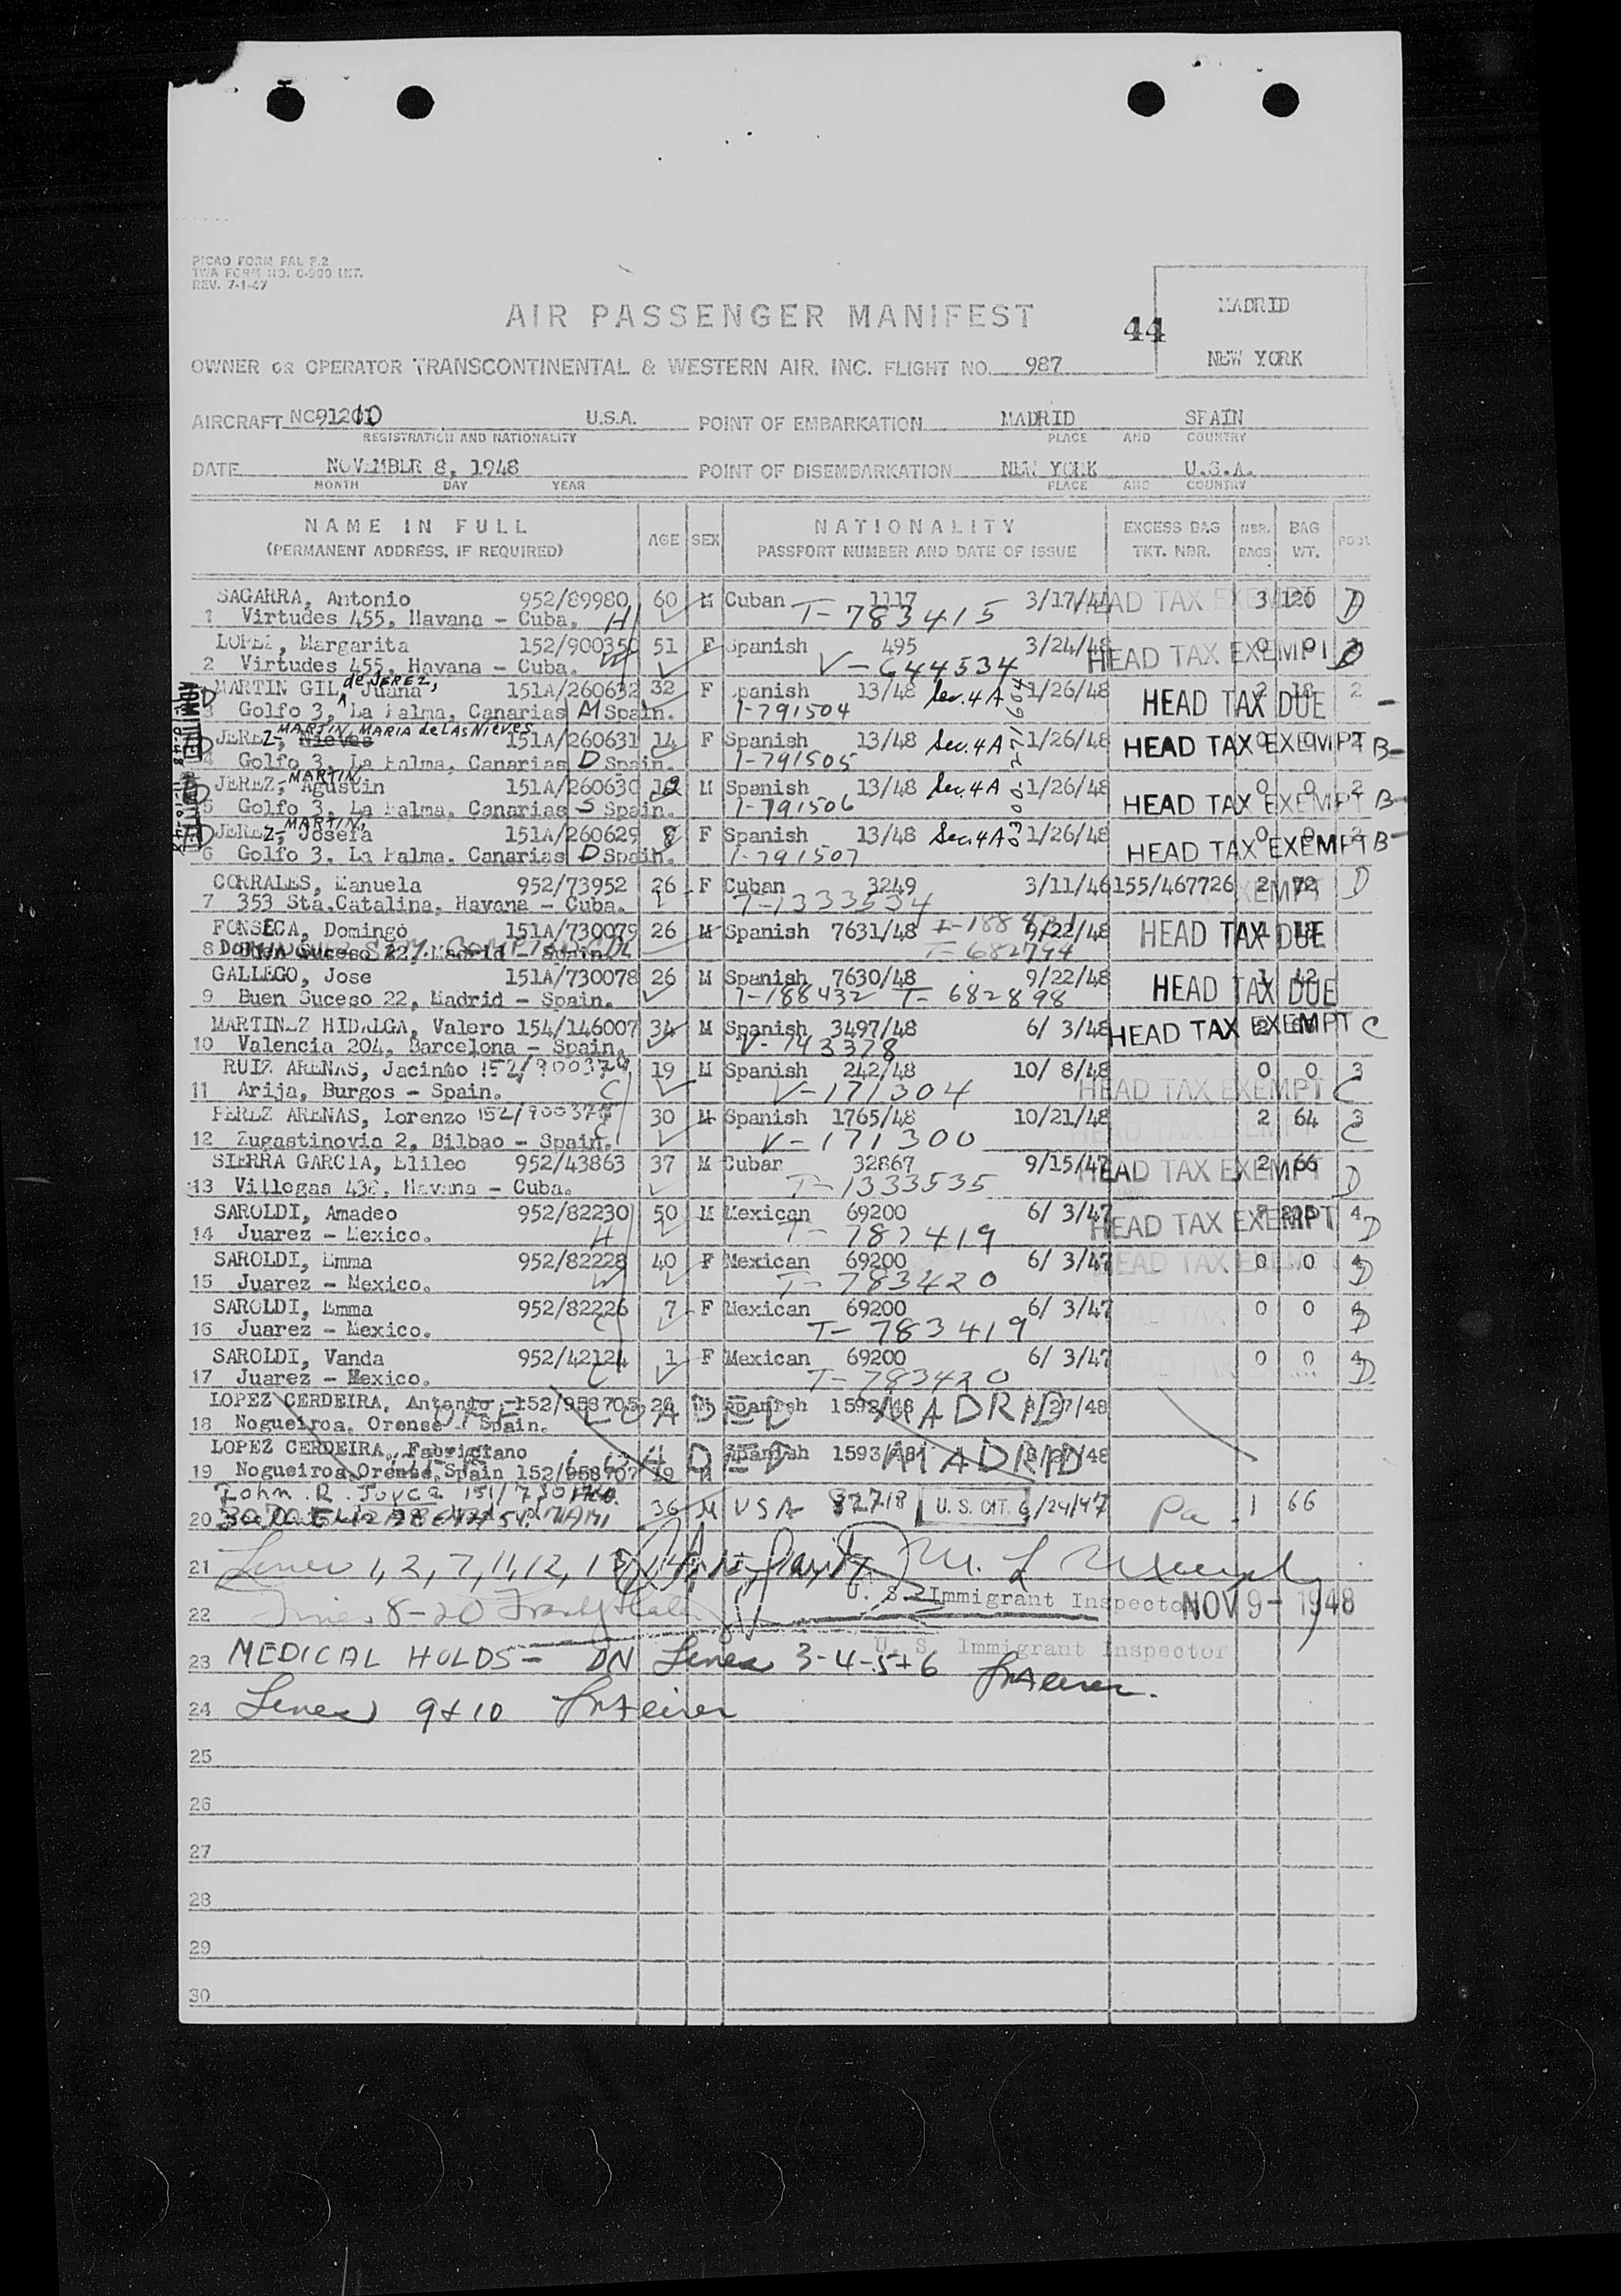 PICAO FORM FAL P.2
TWA FORM NO. 0-900 INT.
REV. 7-1-47
MADRID
AIR PASSENGER MANIFEST
44
NEW YORK
OWNER OR OPERATOR TRANSCONTINENTAL & WESTERN AIR, INC. FLIGHT NO. 987
AIRCRAFT U.S.A. POINT OF EMBARKATION MADRID SPAIN
REGISTRATION AND NATIONALITY PLACE AND COUNTRY
DATE NOVEMBER 8, 1948 POINT OF DISEMBARKATION NEW YORK U.S.A.
MONTH DAY YEAR PLACE AND COUNTRY
NAME IN FULL
(PERMANENT ADDRESS, IF REQUIRED)
AGE SEX
NATIONALITY
PASSPORT NUMBER AND DATE OF ISSUE
EXCESS BAG
TKT. NBR.
NBR.
BAGS
BAG
WT.
POOL
SAGARRA, Antonio 952/89980 60 M Cuban 1117 HEAD TAX 3 120 D
1 Virtudes 455, Havana - Cuba. H T-783415
LOPEZ, Margarita 152/900350 51 F Spanish 495 3/24/48 HEAD TAX EXEMPT 0 0 D
2 Virtudes 455, Havana - Cuba. W V-644534
MARTIN GIL, de JEREZ, Juana 151A/260632 32 F Spanish 13/48 Sec. 4 A 1/26/48 HEAD TAX DUE 2 18 2
3 Golfo 3, La Palma, Canarias M Spain. I-791504
JEREZ- MARTIN, MARIA de LAS NIEVES 151A/260631 14 F Spanish 13/48 Sec. 4 A 1/26/48 HEAD TAX EXEMPT 0 0 2 B-
4 Golfo 3, La Palma, Canarias D Spain. I-791505
JEREZ- MARTIN, Agustin 151A/260630 M Spanish 13/48 Sec. 4 A 1/26/48 HEAD TAX EXEMPT 0 0 2 B-
5 Golfo 3, La Palma, Canarias S Spain. I-791506
JEREZ- MARTIN, Josefa 151A/260629 8 F Spanish 13/48 Sec. 4 A 1/26/48 HEAD TAX EXEMPT 0 0 2 B-
6 Golfo 3, La Palma, Canarias D Spain. I-791507
CORRALES, Manuela 952/73952 26 F Cuban 3249 3/11/46 155/467726 2 72 D
7 353 Sta.Catalina, Havana - Cuba. T-1333534
FONSECA, Domingo 151A/730079 26 M Spanish 7631/48 9/22/48 HEAD TAX DUE
8 Buen Suceso 22, Madrid - Spain. T-682794
GALLEGO, Jose 151A/730078 26 M Spanish 7630/48 9/22/48 HEAD TAX DUE
9 Buen Suceso 22, Madrid - Spain. I-188432 T-682898
MARTINEZ HIDALGA, Valero 154/146007 34 M Spanish 3497/48 6/ 3/48 HEAD TAX EXEMPT C
10 Valencia 204, Barcelona - Spain. V-743378
RUIZ ARENAS, Jacinto 19 M Spanish 242/48 10/ 8/48 0 0 3
11 Arija, Burgos - Spain. C V-171304 HEAD TAX EXEMPT C
PEREZ ARENAS, Lorenzo 30 M Spanish 1765/48 10/21/48 2 64 3
12 Zugastinovia 2, Bilbao - Spain. V-171300 C
SIERRA GARCIA, Elileo 952/43863 37 M Cuban 32867 9/15/47 HEAD TAX EXEMPT 2 66
13 Villegas Havana - Cuba. T-1333535 D
SAROLDI, Amadeo 952/82230 50 M Mexican 69200 6/ 3/47 HEAD TAX EXEMPT 4 D
14 Juarez - Mexico. H T-783419
SAROLDI, Emma 952/82228 40 F Mexican 69200 6/ 3/47 HEAD TAX 0 0 4 D
15 Juarez - Mexico. W T-783420
SAROLDI, Emma 952/82226 7 F Mexican 69200 6/ 3/47 0 0 4 D
16 Juarez - Mexico. C T-783419
SAROLDI, Vanda 952/42124 1 F Mexican 69200 6/ 3/47 0 0 4 D
17 Juarez - Mexico. C T-783420
LOPEZ CERDEIRA, Antonio 152/958705 M Spanish 1592/48 MADRID
18 Nogueiroa, Orense - Spain.
LOPEZ CERDEIRA, Spanish 1593/48 MADRID
19 Nogueiroa, Orense, Spain 152/958707 19
John R. Joyce 36 M USA U.S. CIT. 6/24/47 Pa 1 66
20
21 Lines 1, 2, 7, 11, 12,
22 Lines 8-20 U. S. Immigrant Inspector NOV 9 - 1948
U. S. Immigrant Inspector
23 MEDICAL HOLDS - ON Lines 3-4-5+6
24 Lines 9+10
25
26
27
28
29
30